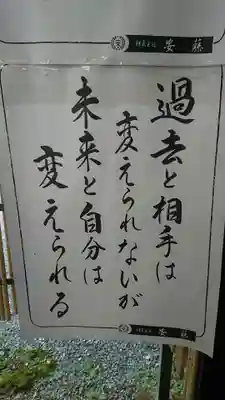 安藤
過去と相手は
変えられないが
未来と自分は
変えられる
安藤